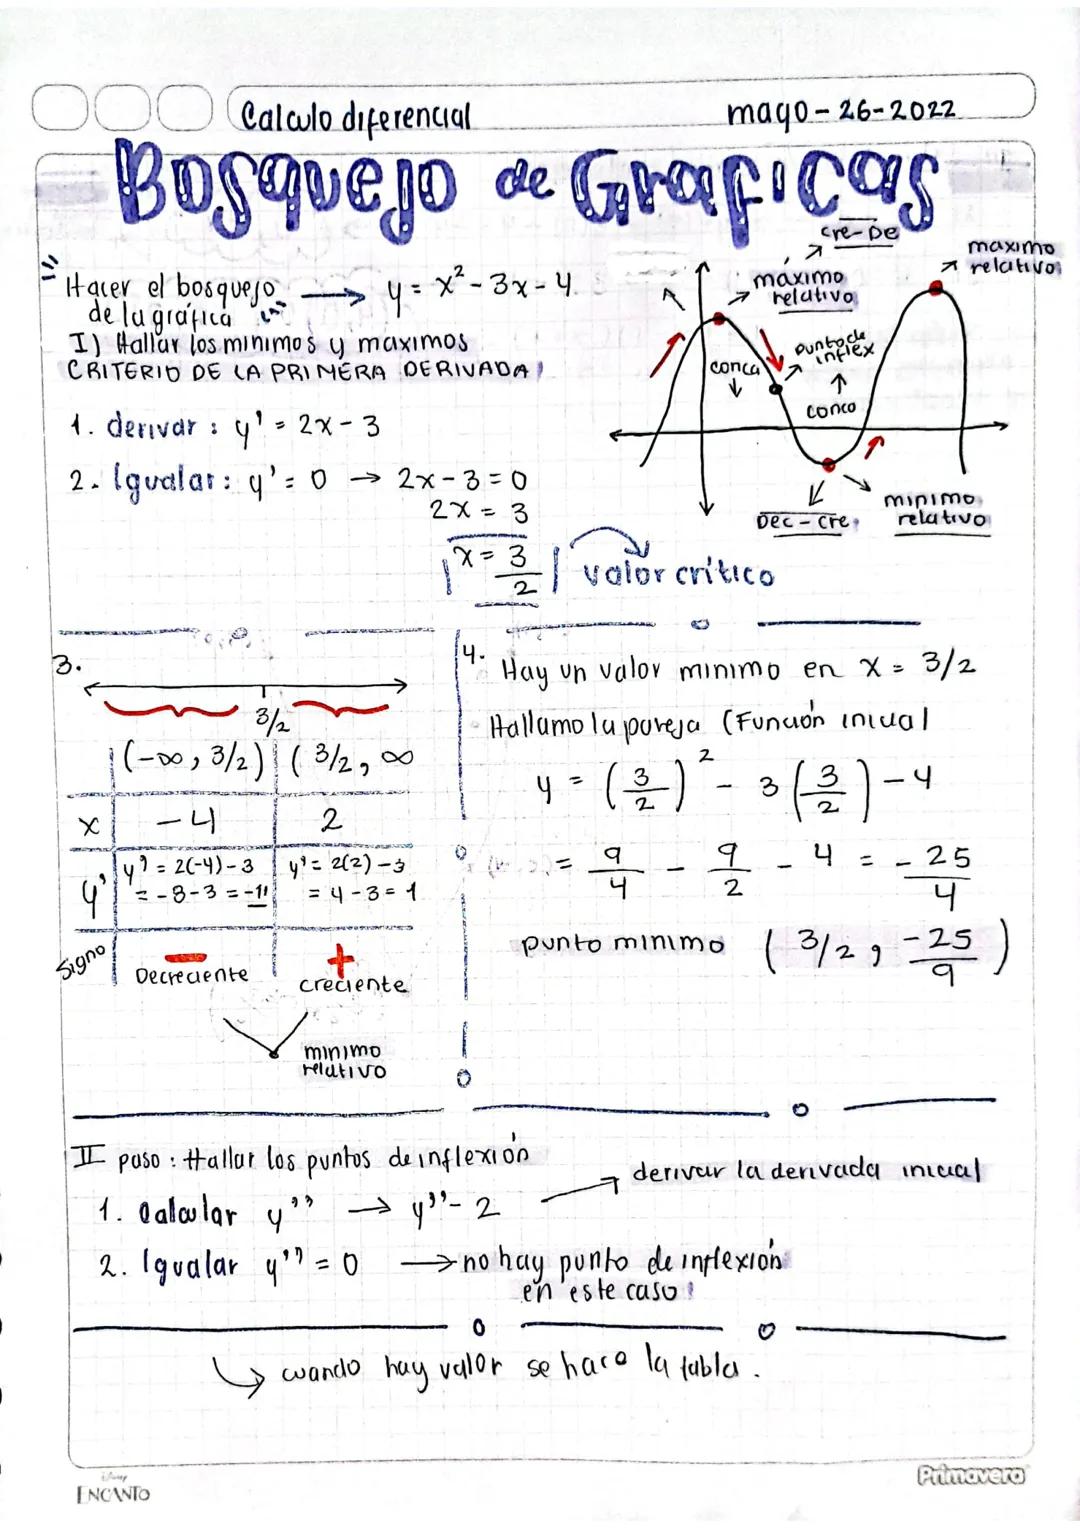 Calculo diferencial mayo-26-2022
Bosquejo de Graficas
Hacer el bosquejo → y = x² - 3x - 4
de la gráfica
I) Hallar los minimos y maximos
CRITERIO DE LA PRIMERA DERIVADA
1. derivar : y' = 2x - 3
2. Igualar: y' = 0 → 2x - 3 = 0
2x = 3
x = 3/2 valor crítico
cre-De
máximo
relativo
maximo
relativo
conca ↓
punto de
inflex
↑
conco
Dec-cre
minimo
relativo
3.
3/2
(-∞, 3/2) ( 3/2, ∞
x -4 2
y' y' = 2(-4)-3 y' = 2(2)-3
= -8-3 = -11 = 4-3 = 1
Signo − +
Decreciente creciente
minimo
relativo
4. Hay un valor minimo en x = 3/2
Hallamo la pareja (Función inicial
y = (3/2)² - 3(3/2) - 4
= 9/4 - 9/2 - 4 = -25/4
punto minimo ( 3/2, -25/9 )
II paso : Hallar los puntos de inflexión
1. Calcular y'' → y''- 2 → derivar la derivada inicial
2. Igualar y'' = 0 → no hay punto de inflexión
en este caso
↳ cuando hay valor se hace la tabla.
Disney
ENCANTO
Primavera